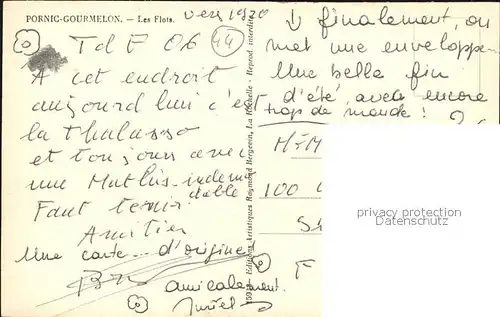 PORNIC-GOURMELON. — Les Flots.
vers 1920
TdF 06 44
A cet endroit
aujourd'hui c'est
la Thalasso
et toujours avec
une
Faut tenir
Amitiés
Une carte d'origine
amicalement.
Muriel
↓ finalement, on
met une enveloppe.
Une belle fin
d'été, avec encore
trop de monde !
100
F
Editions Artistiques Raymond Bergevin, La Rochelle - Reprod. interdite
privacy protection
Datenschutz